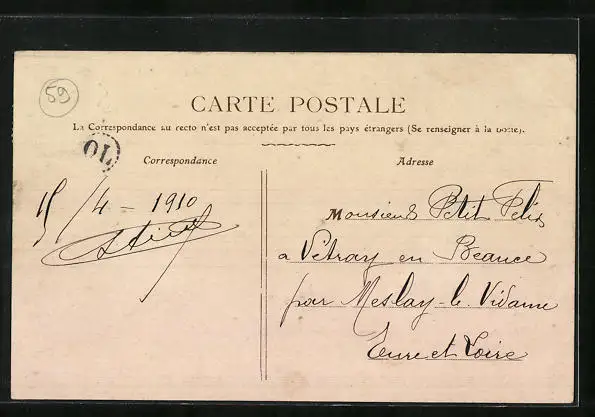 59
CARTE POSTALE
La Correspondance au recto n'est pas acceptée par tous les pays étrangers (Se renseigner à la Poste).
OL
Correspondance
Adresse
15/4 - 1910
Monsieur Petit Felix
a Vétray en Beauce
par Meslay-le-Vidame
Eure et Loire